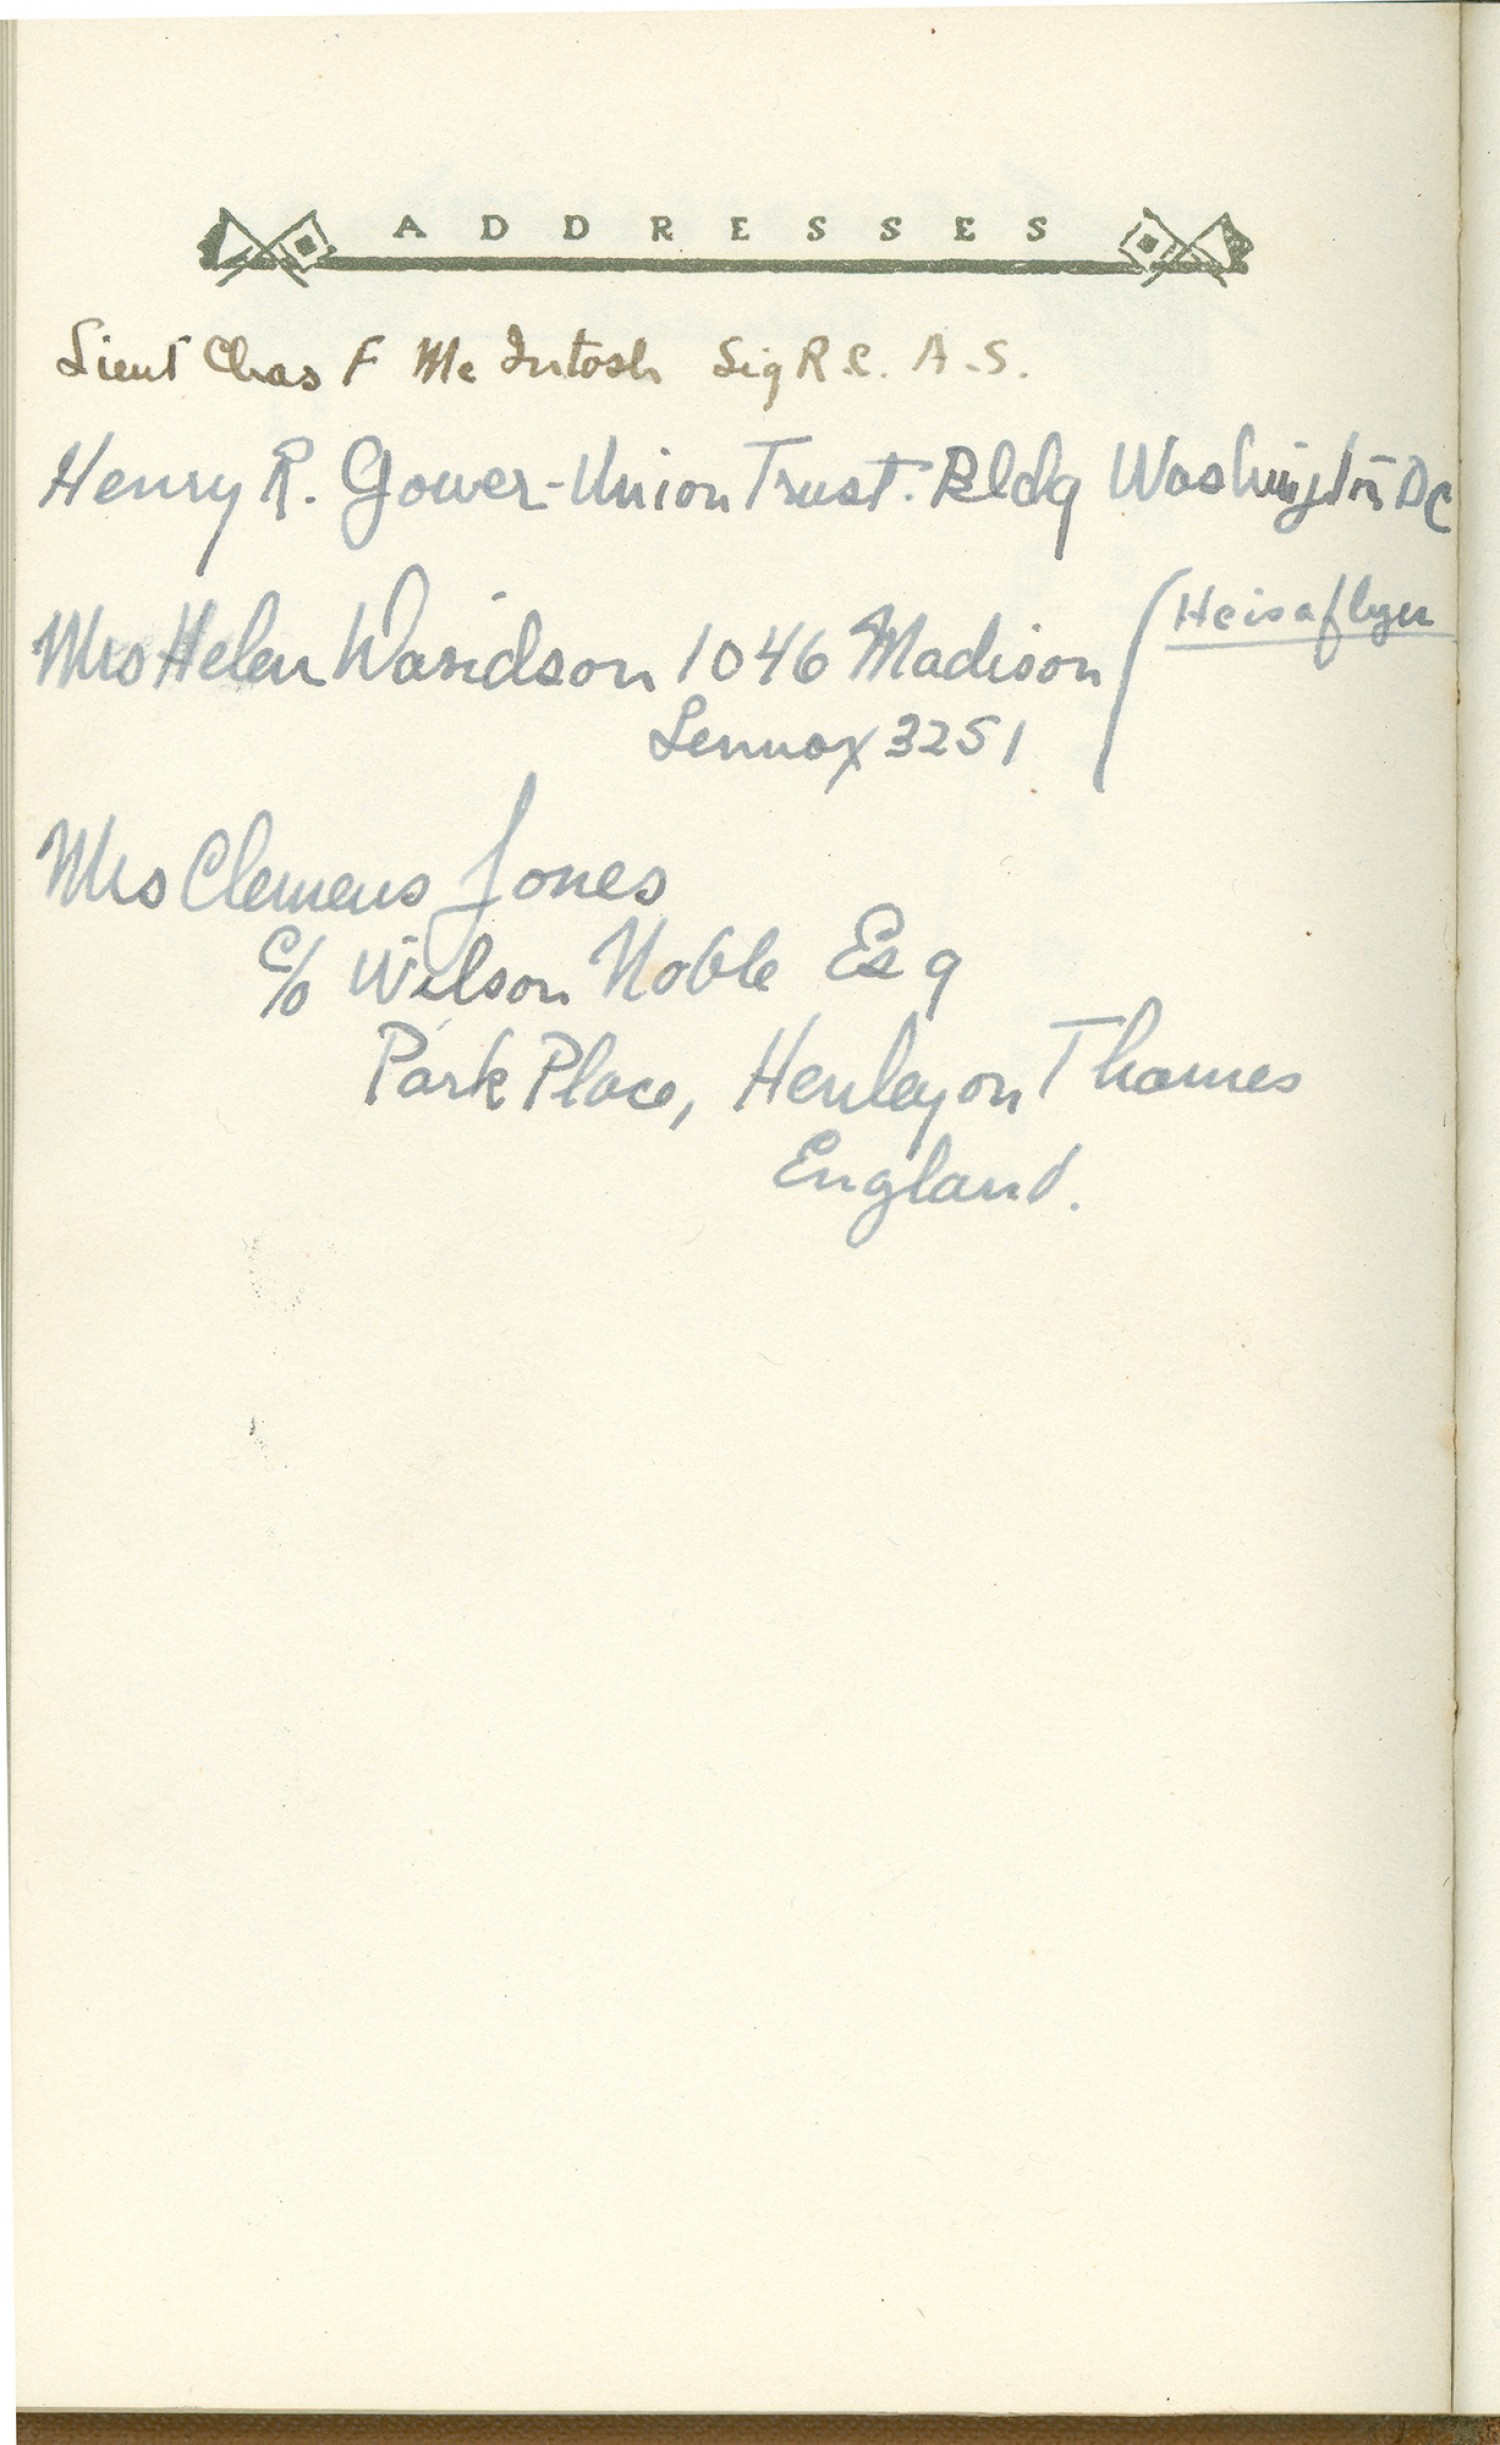 ADDRESSES
Lieut Chas F McIntosh Sig R.C. A.S.
Henry R. Gower - Union Trust. Bldg Washington DC
Mrs Helen Davidson 1046 Madison ( He is a flyer
Lennox 3251
Mrs Clemens Jones
c/o Wilson Noble Esq
Park Place, Henley on Thames
England.